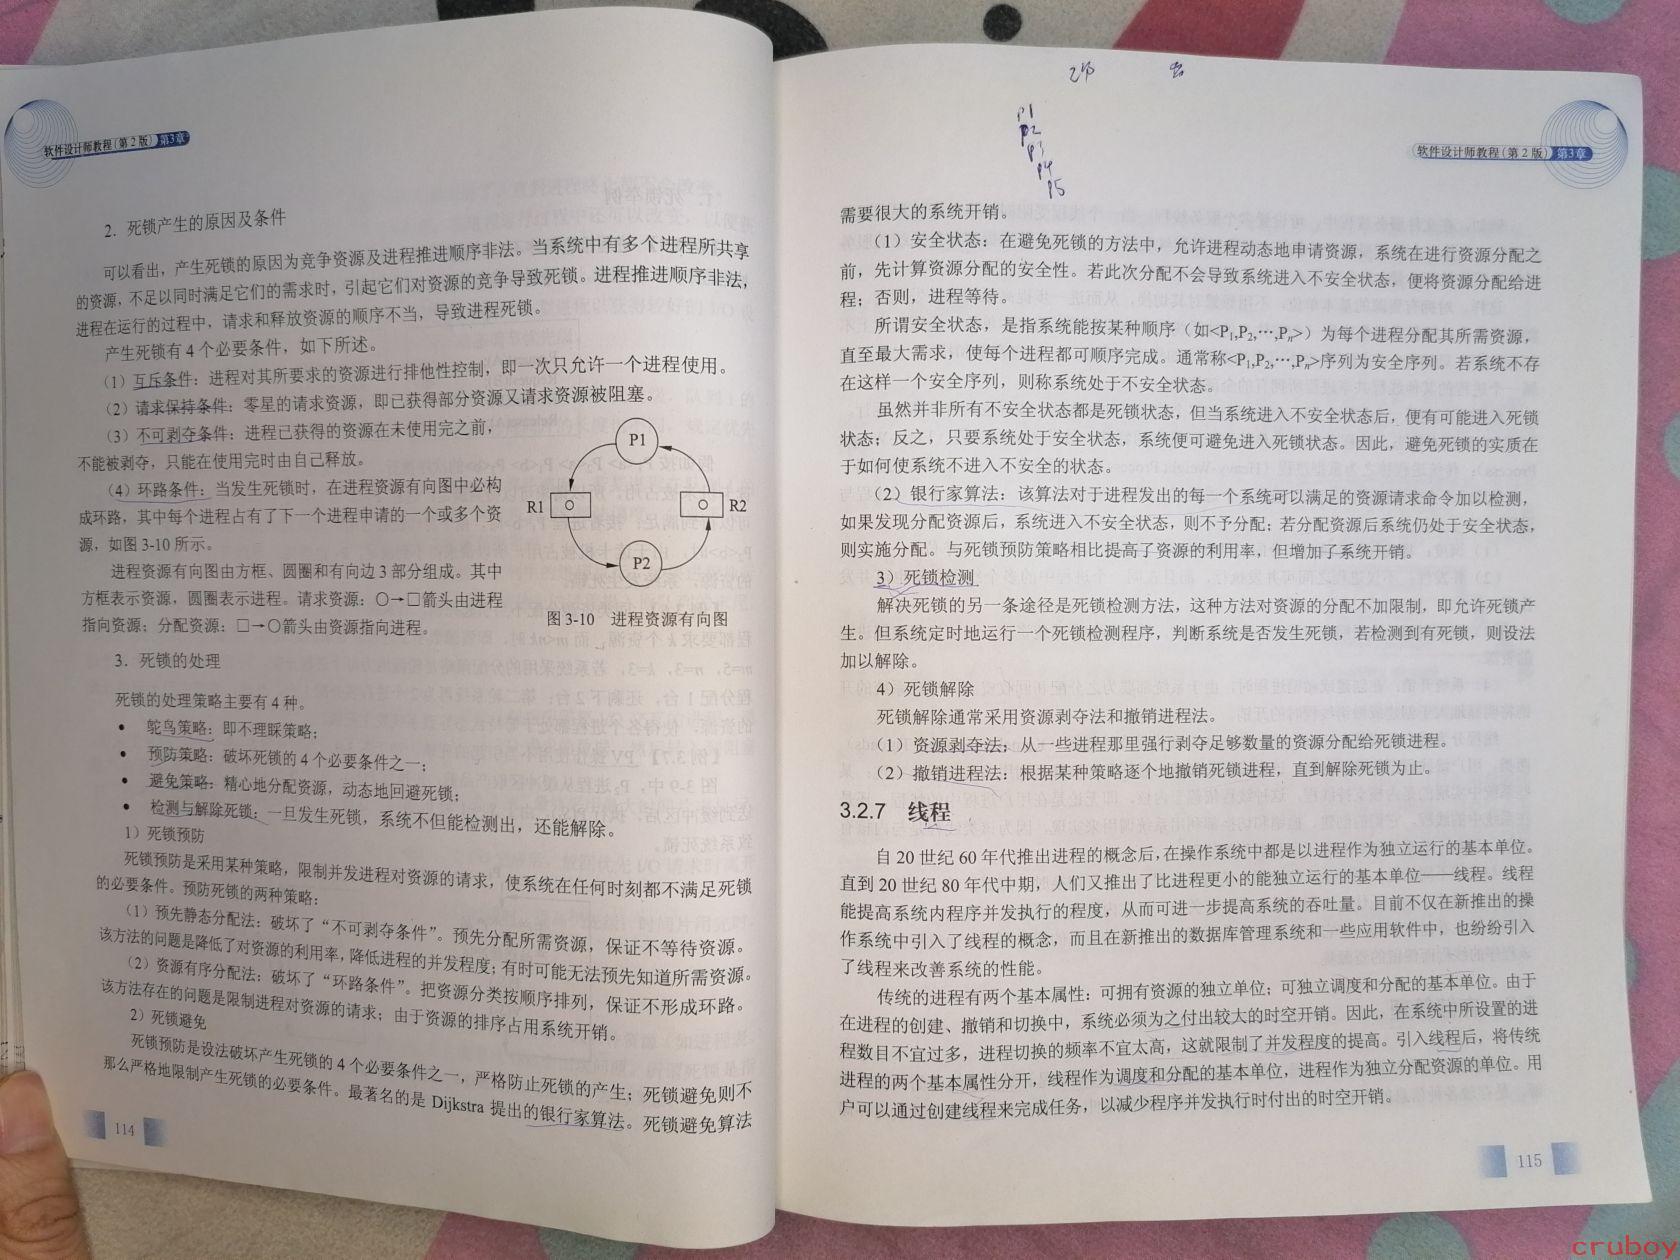 软件设计师教程（第 2 版） 第3章
2．死锁产生的原因及条件
可以看出，产生死锁的原因为竞争资源及进程推进顺序非法。当系统中有多个进程所共享
的资源，不足以同时满足它们的需求时，引起它们对资源的竞争导致死锁。进程推进顺序非法，
进程在运行的过程中，请求和释放资源的顺序不当，导致进程死锁。
产生死锁有 4 个必要条件，如下所述。
（1）互斥条件：进程对其所要求的资源进行排他性控制，即一次只允许一个进程使用。
（2）请求保持条件：零星的请求资源，即已获得部分资源又请求资源被阻塞。
（3）不可剥夺条件：进程已获得的资源在未使用完之前，
不能被剥夺，只能在使用完时由自己释放。
（4）环路条件：当发生死锁时，在进程资源有向图中必构
成环路，其中每个进程占有了下一个进程申请的一个或多个资
源，如图 3-10 所示。
进程资源有向图由方框、圆圈和有向边 3 部分组成。其中
方框表示资源，圆圈表示进程。请求资源：○→□箭头由进程
指向资源；分配资源：□→○箭头由资源指向进程。
P1
R1
R2
P2
图 3-10　进程资源有向图
3．死锁的处理
死锁的处理策略主要有 4 种。
• 鸵鸟策略：即不理睬策略；
• 预防策略：破坏死锁的 4 个必要条件之一；
• 避免策略：精心地分配资源，动态地回避死锁；
• 检测与解除死锁：一旦发生死锁，系统不但能检测出，还能解除。
1）死锁预防
死锁预防是采用某种策略，限制并发进程对资源的请求，使系统在任何时刻都不满足死锁
的必要条件。预防死锁的两种策略：
（1）预先静态分配法：破坏了“不可剥夺条件”。预先分配所需资源，保证不等待资源。
该方法的问题是降低了对资源的利用率，降低进程的并发程度；有时可能无法预先知道所需资源。
（2）资源有序分配法：破坏了“环路条件”。把资源分类按顺序排列，保证不形成环路。
该方法存在的问题是限制进程对资源的请求；由于资源的排序占用系统开销。
2）死锁避免
死锁预防是设法破坏产生死锁的 4 个必要条件之一，严格防止死锁的产生；死锁避免则不
那么严格地限制产生死锁的必要条件。最著名的是 Dijkstra 提出的银行家算法。死锁避免算法
114
P1
P2
P3
P4
P5
软件设计师教程（第 2 版） 第3章
需要很大的系统开销。
（1）安全状态：在避免死锁的方法中，允许进程动态地申请资源，系统在进行资源分配之
前，先计算资源分配的安全性。若此次分配不会导致系统进入不安全状态，便将资源分配给进
程；否则，进程等待。
所谓安全状态，是指系统能按某种顺序（如<P1,P2,…,Pn>）为每个进程分配其所需资源，
直至最大需求，使每个进程都可顺序完成。通常称<P1,P2,…,Pn>序列为安全序列。若系统不存
在这样一个安全序列，则称系统处于不安全状态。
虽然并非所有不安全状态都是死锁状态，但当系统进入不安全状态后，便有可能进入死锁
状态；反之，只要系统处于安全状态，系统便可避免进入死锁状态。因此，避免死锁的实质在
于如何使系统不进入不安全的状态。
（2）银行家算法：该算法对于进程发出的每一个系统可以满足的资源请求命令加以检测，
如果发现分配资源后，系统进入不安全状态，则不予分配；若分配资源后系统仍处于安全状态，
则实施分配。与死锁预防策略相比提高了资源的利用率，但增加了系统开销。
3）死锁检测
解决死锁的另一条途径是死锁检测方法，这种方法对资源的分配不加限制，即允许死锁产
生。但系统定时地运行一个死锁检测程序，判断系统是否发生死锁，若检测到有死锁，则设法
加以解除。
4）死锁解除
死锁解除通常采用资源剥夺法和撤销进程法。
（1）资源剥夺法：从一些进程那里强行剥夺足够数量的资源分配给死锁进程。
（2）撤销进程法：根据某种策略逐个地撤销死锁进程，直到解除死锁为止。
3.2.7　线程
自 20 世纪 60 年代推出进程的概念后，在操作系统中都是以进程作为独立运行的基本单位。
直到 20 世纪 80 年代中期，人们又推出了比进程更小的能独立运行的基本单位——线程。线程
能提高系统内程序并发执行的程度，从而可进一步提高系统的吞吐量。目前不仅在新推出的操
作系统中引入了线程的概念，而且在新推出的数据库管理系统和一些应用软件中，也纷纷引入
了线程来改善系统的性能。
传统的进程有两个基本属性：可拥有资源的独立单位；可独立调度和分配的基本单位。由于
在进程的创建、撤销和切换中，系统必须为之付出较大的时空开销。因此，在系统中所设置的进
程数目不宜过多，进程切换的频率不宜太高，这就限制了并发程度的提高。引入线程后，将传统
进程的两个基本属性分开，线程作为调度和分配的基本单位，进程作为独立分配资源的单位。用
户可以通过创建线程来完成任务，以减少程序并发执行时付出的时空开销。
115
cruboy